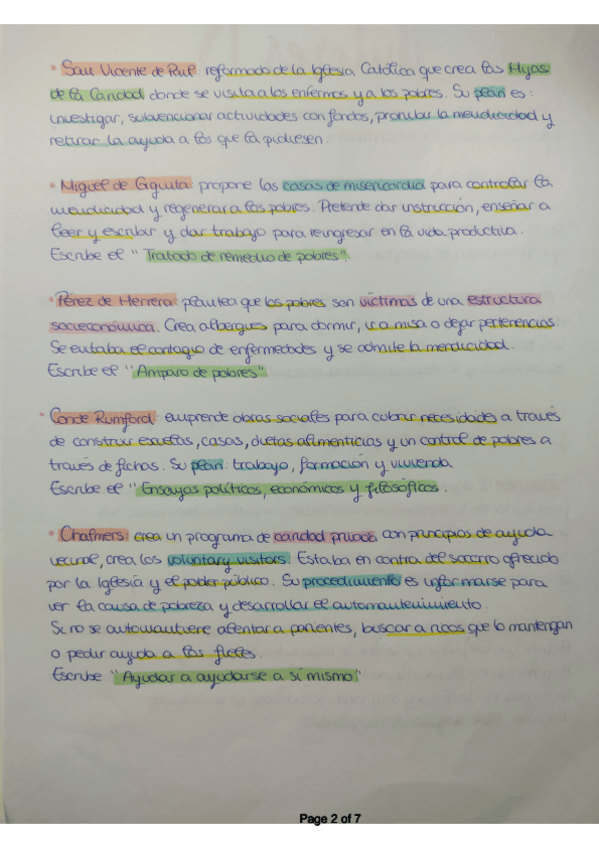 • San Vicente de Paúl: reformado de la Iglesia Católica que crea las Hijas
de la Caridad donde se visita a los enfermos y a los pobres. Su plan es:
investigar, subvencionar actividades con fondos, prohibir la mendicidad y
retirar la ayuda a los que la pidiesen.
• Miguel de Giguinta: propone las casas de misericordia para controlar la
mendicidad y regenerar a los pobres. Pretende dar instrucción, enseñar a
leer y escribir y dar trabajo para reingresar en la vida productiva.
Escribe el "Tratado de remedio de pobres".
• Pérez de Herrera: plantea que los pobres son víctimas de una estructura
socioeconómica. Crea albergues para dormir, ir a misa o dejar pertenencias.
Se evitaba el contagio de enfermedades y se admite la mendicidad.
Escribe el "Amparo de pobres"
• Conde Rumford: emprende obras sociales para cubrir necesidades a través
de construir escuelas, casas, dietas alimenticias y un control de pobres a
través de fichas. Su plan: trabajo, formación y vivienda
Escribe el "Ensayos políticos, económicos y filosóficos.
• Chalmers: crea un programa de caridad privada con principios de ayuda
vecinal, crea los voluntary visitors. Estaba en contra del socorro ofrecido
por la Iglesia y el poder público. Su procedimiento es informarse para
ver la causa de pobreza y desarrollar el automantenimiento.
Si no se automantiene alentar a parientes, buscar a ricos que lo mantengan
o pedir ayuda a los fieles.
Escribe "Ayudar a ayudarse a sí mismo"
Page 2 of 7